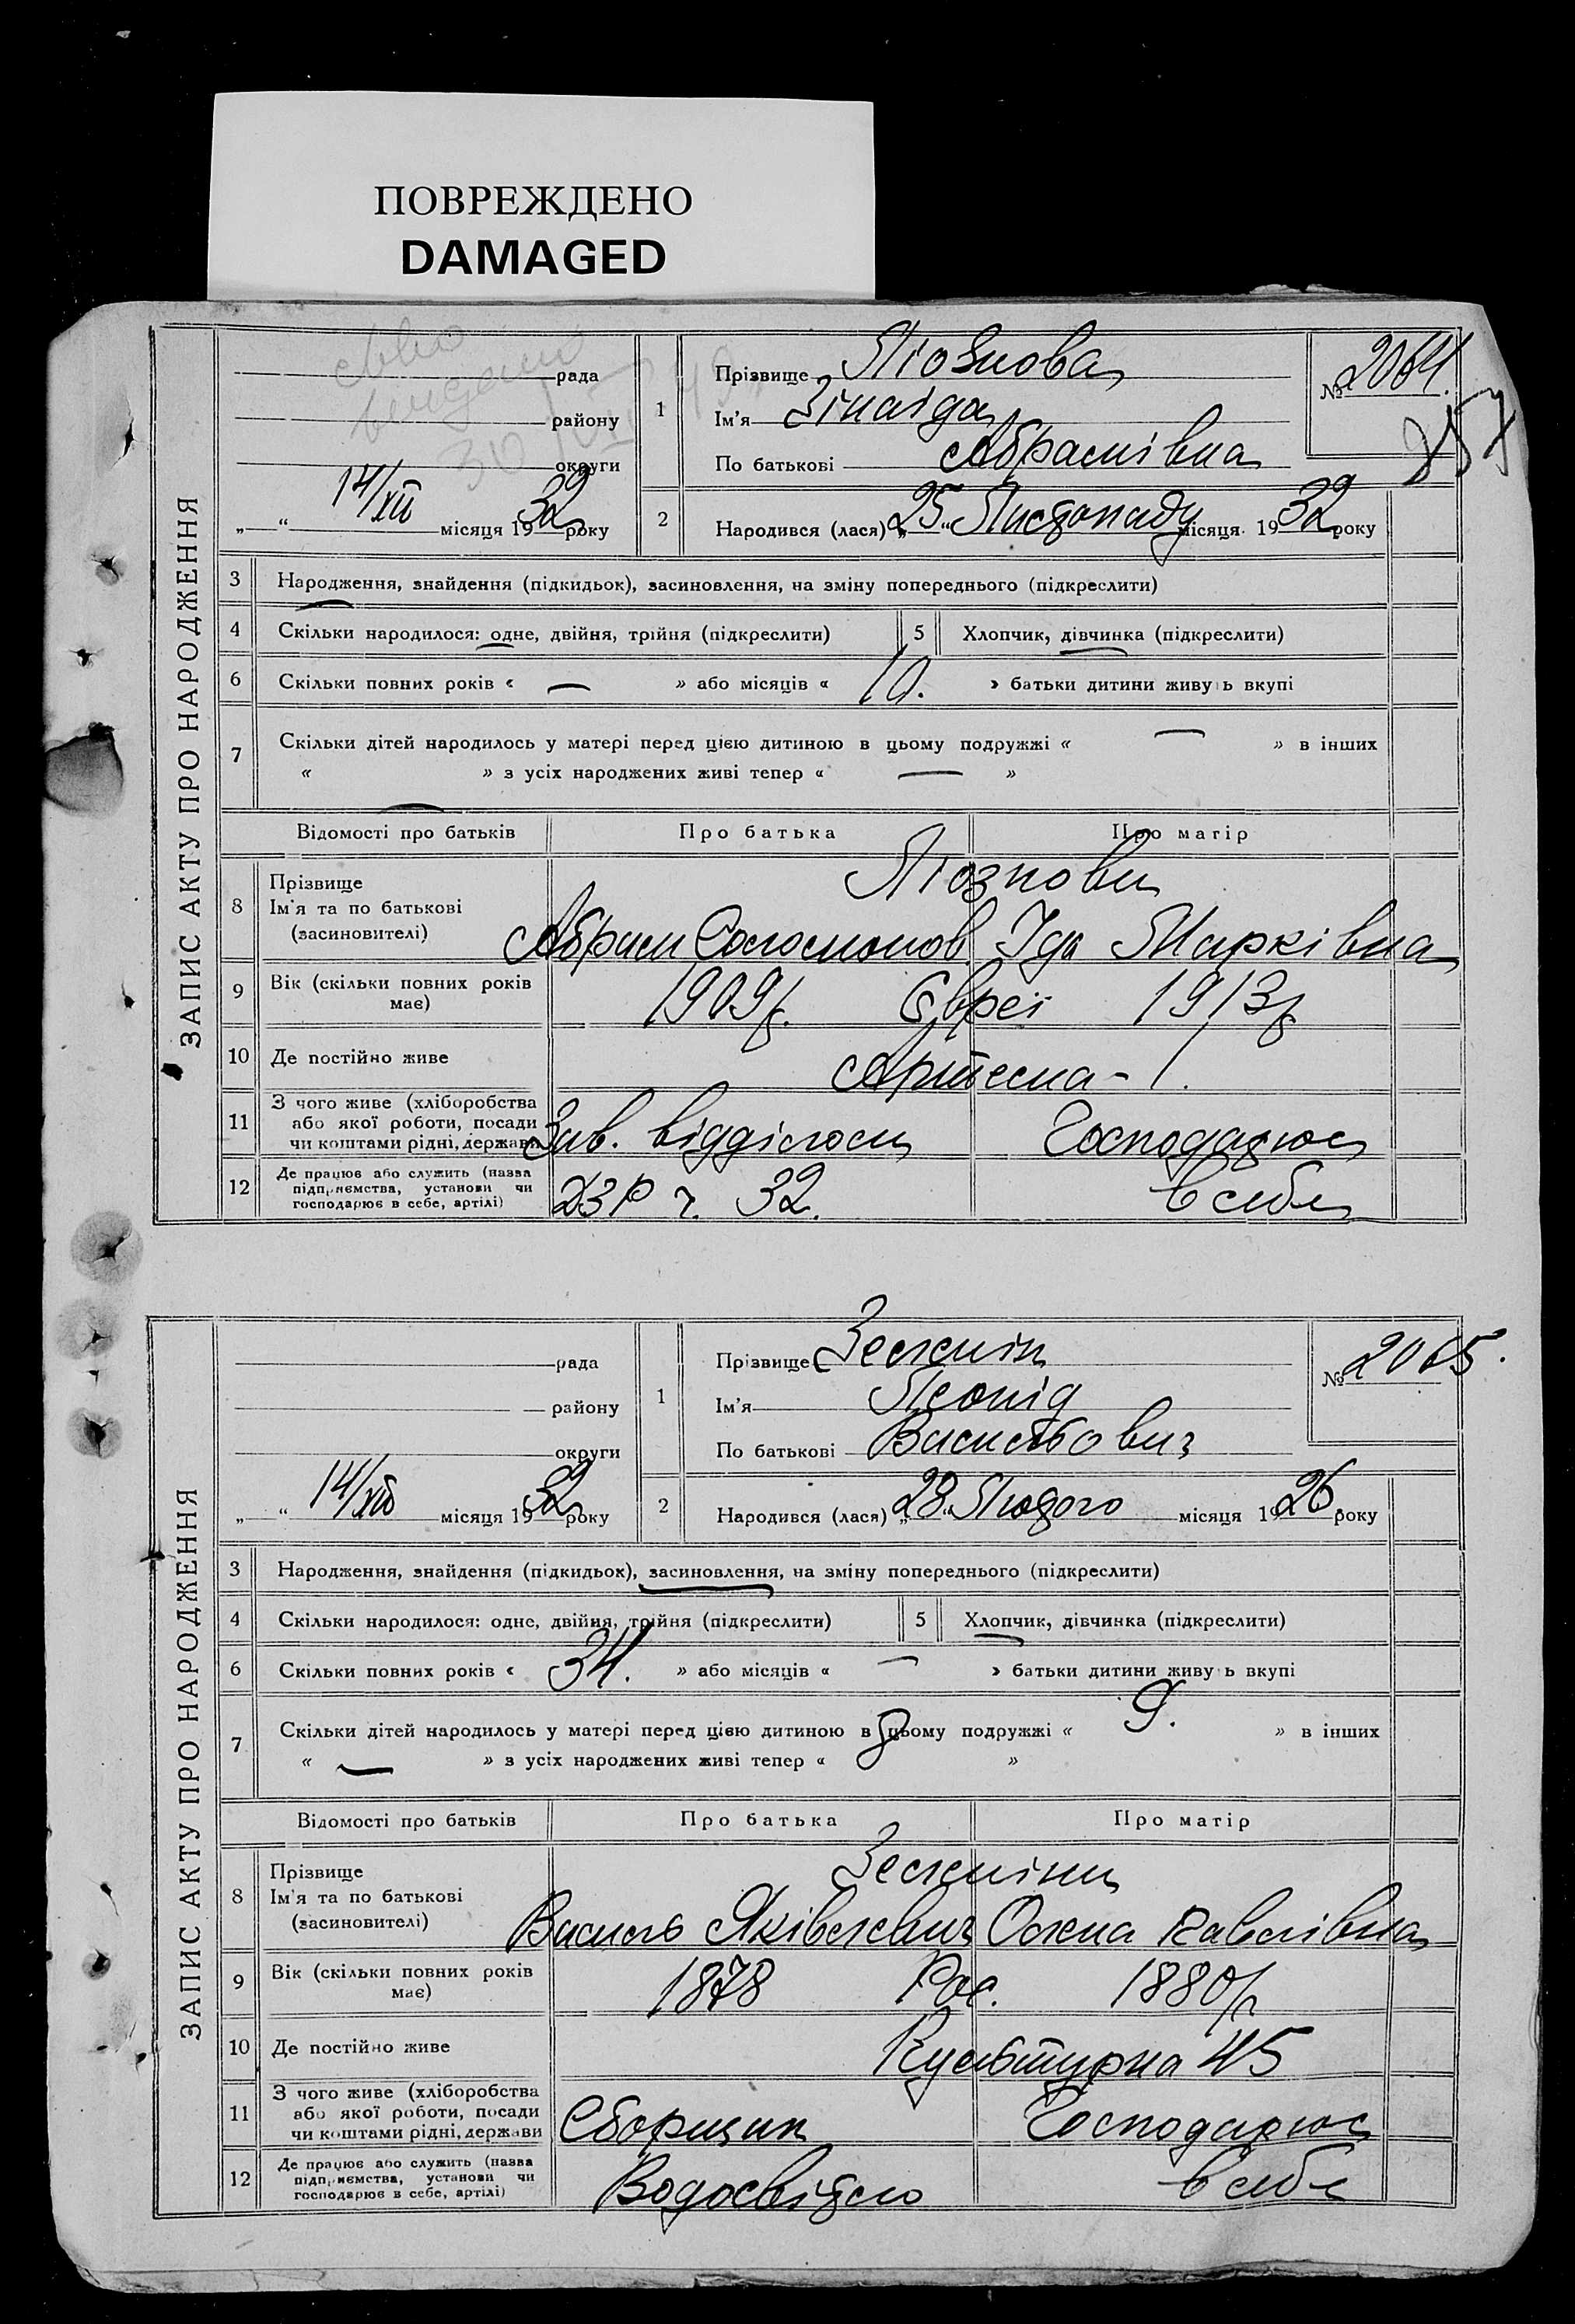 ПОВРЕЖДЕНО
DAMAGED
ЗАПИС АКТУ ПРО НАРОДЖЕННЯ
рада
району
округи
„ “ 14/XII місяця 1932 року
1
Прізвище Люзнова
Ім'я Зінаїда
По батькові Абрамівна
№ 2064.
257
2
Народився (лася) „25“ Листопаду місяця 1932 року
3 Народження, знайдення (підкидьок), засиновлення, на зміну попереднього (підкреслити)
4 Скільки народилося: одне, двійня, трійня (підкреслити) 5 Хлопчик, дівчинка (підкреслити)
6 Скільки повних років « — » або місяців « 10. » батьки дитини живуть вкупі
7 Скільки дітей народилось у матері перед цією дитиною в цьому подружжі « — » в інших
« » з усіх народжених живі тепер « — »
Відомості про батьків Про батька Про матір
8 Прізвище Люзнови
Ім'я та по батькові
(засновителі) Абрам Соломонов. Іда Марківна
9 Вік (скільки повних років має) 1909р. Євреї 1913р
10 Де постійно живе Артема - 1.
11 З чого живе (хліборобства
або якої роботи, посади
чи коштами рідні, держави Зав. відділом Господарює
12 Де працює або служить (назва
підприємства, установи чи
господарює в себе, артілі) ДЗР ч. 32. в себе
ЗАПИС АКТУ ПРО НАРОДЖЕННЯ
рада
району
округи
„ “ 14/XII місяця 1932 року
1
Прізвище Зеленін
Ім'я Леонід
По батькові Васильович
№ 2065.
2
Народився (лася) „28“ Лютого місяця 1926 року
3 Народження, знайдення (підкидьок), засиновлення, на зміну попереднього (підкреслити)
4 Скільки народилося: одне, двійня, трійня (підкреслити) 5 Хлопчик, дівчинка (підкреслити)
6 Скільки повних років « 34. » або місяців « — » батьки дитини живуть вкупі
7 Скільки дітей народилось у матері перед цією дитиною в цьому подружжі « 9. » в інших
« — » з усіх народжених живі тепер « 8 »
Відомості про батьків Про батька Про матір
8 Прізвище Зеленіни
Ім'я та по батькові
(засиновителі) Василь Яківлевич Олена Павлівна
9 Вік (скільки повних років має) 1878 Рос. 1880р
10 Де постійно живе Культурна 45
11 З чого живе (хліборобства
або якої роботи, посади
чи коштами рідні, держави Сборщик Господарює
12 Де працює або служить (назва
підприємства, установи чи
господарює в себе, артілі) Водосвітло в себе